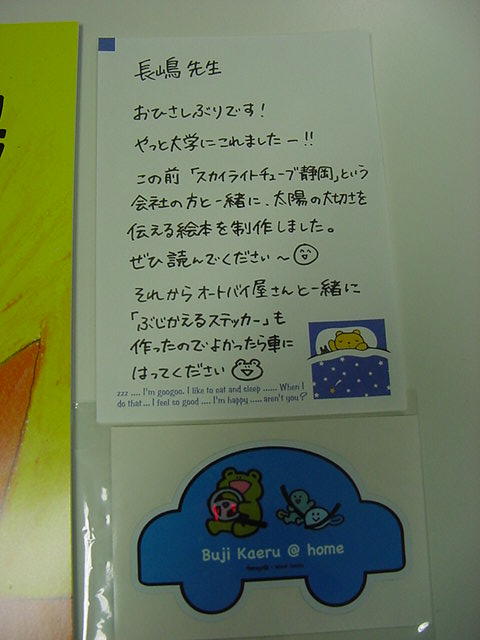 長嶋先生
おひさしぶりです!
やっと大学にこれましたー!!
この前「スカイライトチューブ静岡」という
会社の方と一緒に、太陽の大切さを
伝える絵本を制作しました。
ぜひ読んでください〜
それからオートバイ屋さんと一緒に
「ぶじかえるステッカー」も
作ったのでよかったら車に
はってください
zzz .... I'm googoo. I like to eat and sleep ...... When I
do that... I feel so good .... I'm happy ..... aren't you?
Buji Kaeru @ home